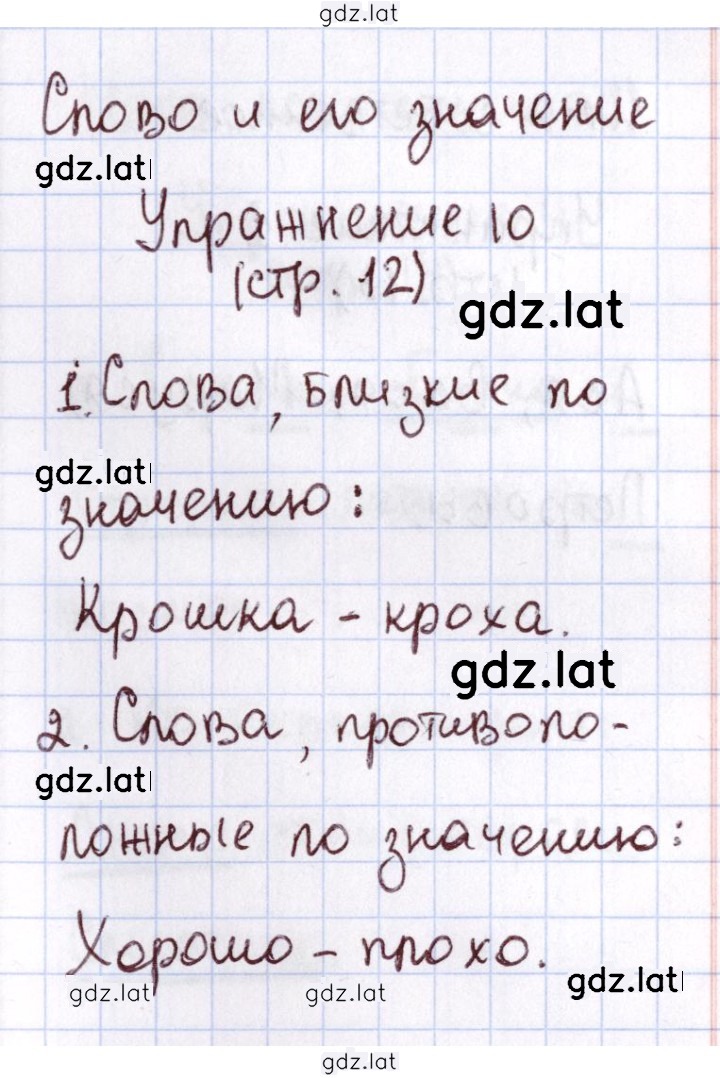 gdz.lat
Слово и его значение
gdz.lat
Упражнение 10
(стр. 12)
gdz.lat
1. Слова, близкие по
gdz.lat
значению:
Крошка - кроха.
gdz.lat
2. Слова, противопо-
gdz.lat
ложные по значению:
Хорошо - плохо.
gdz.lat
gdz.lat gdz.lat
gdz.lat